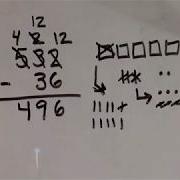 12
4 2 12
532
- 36
496